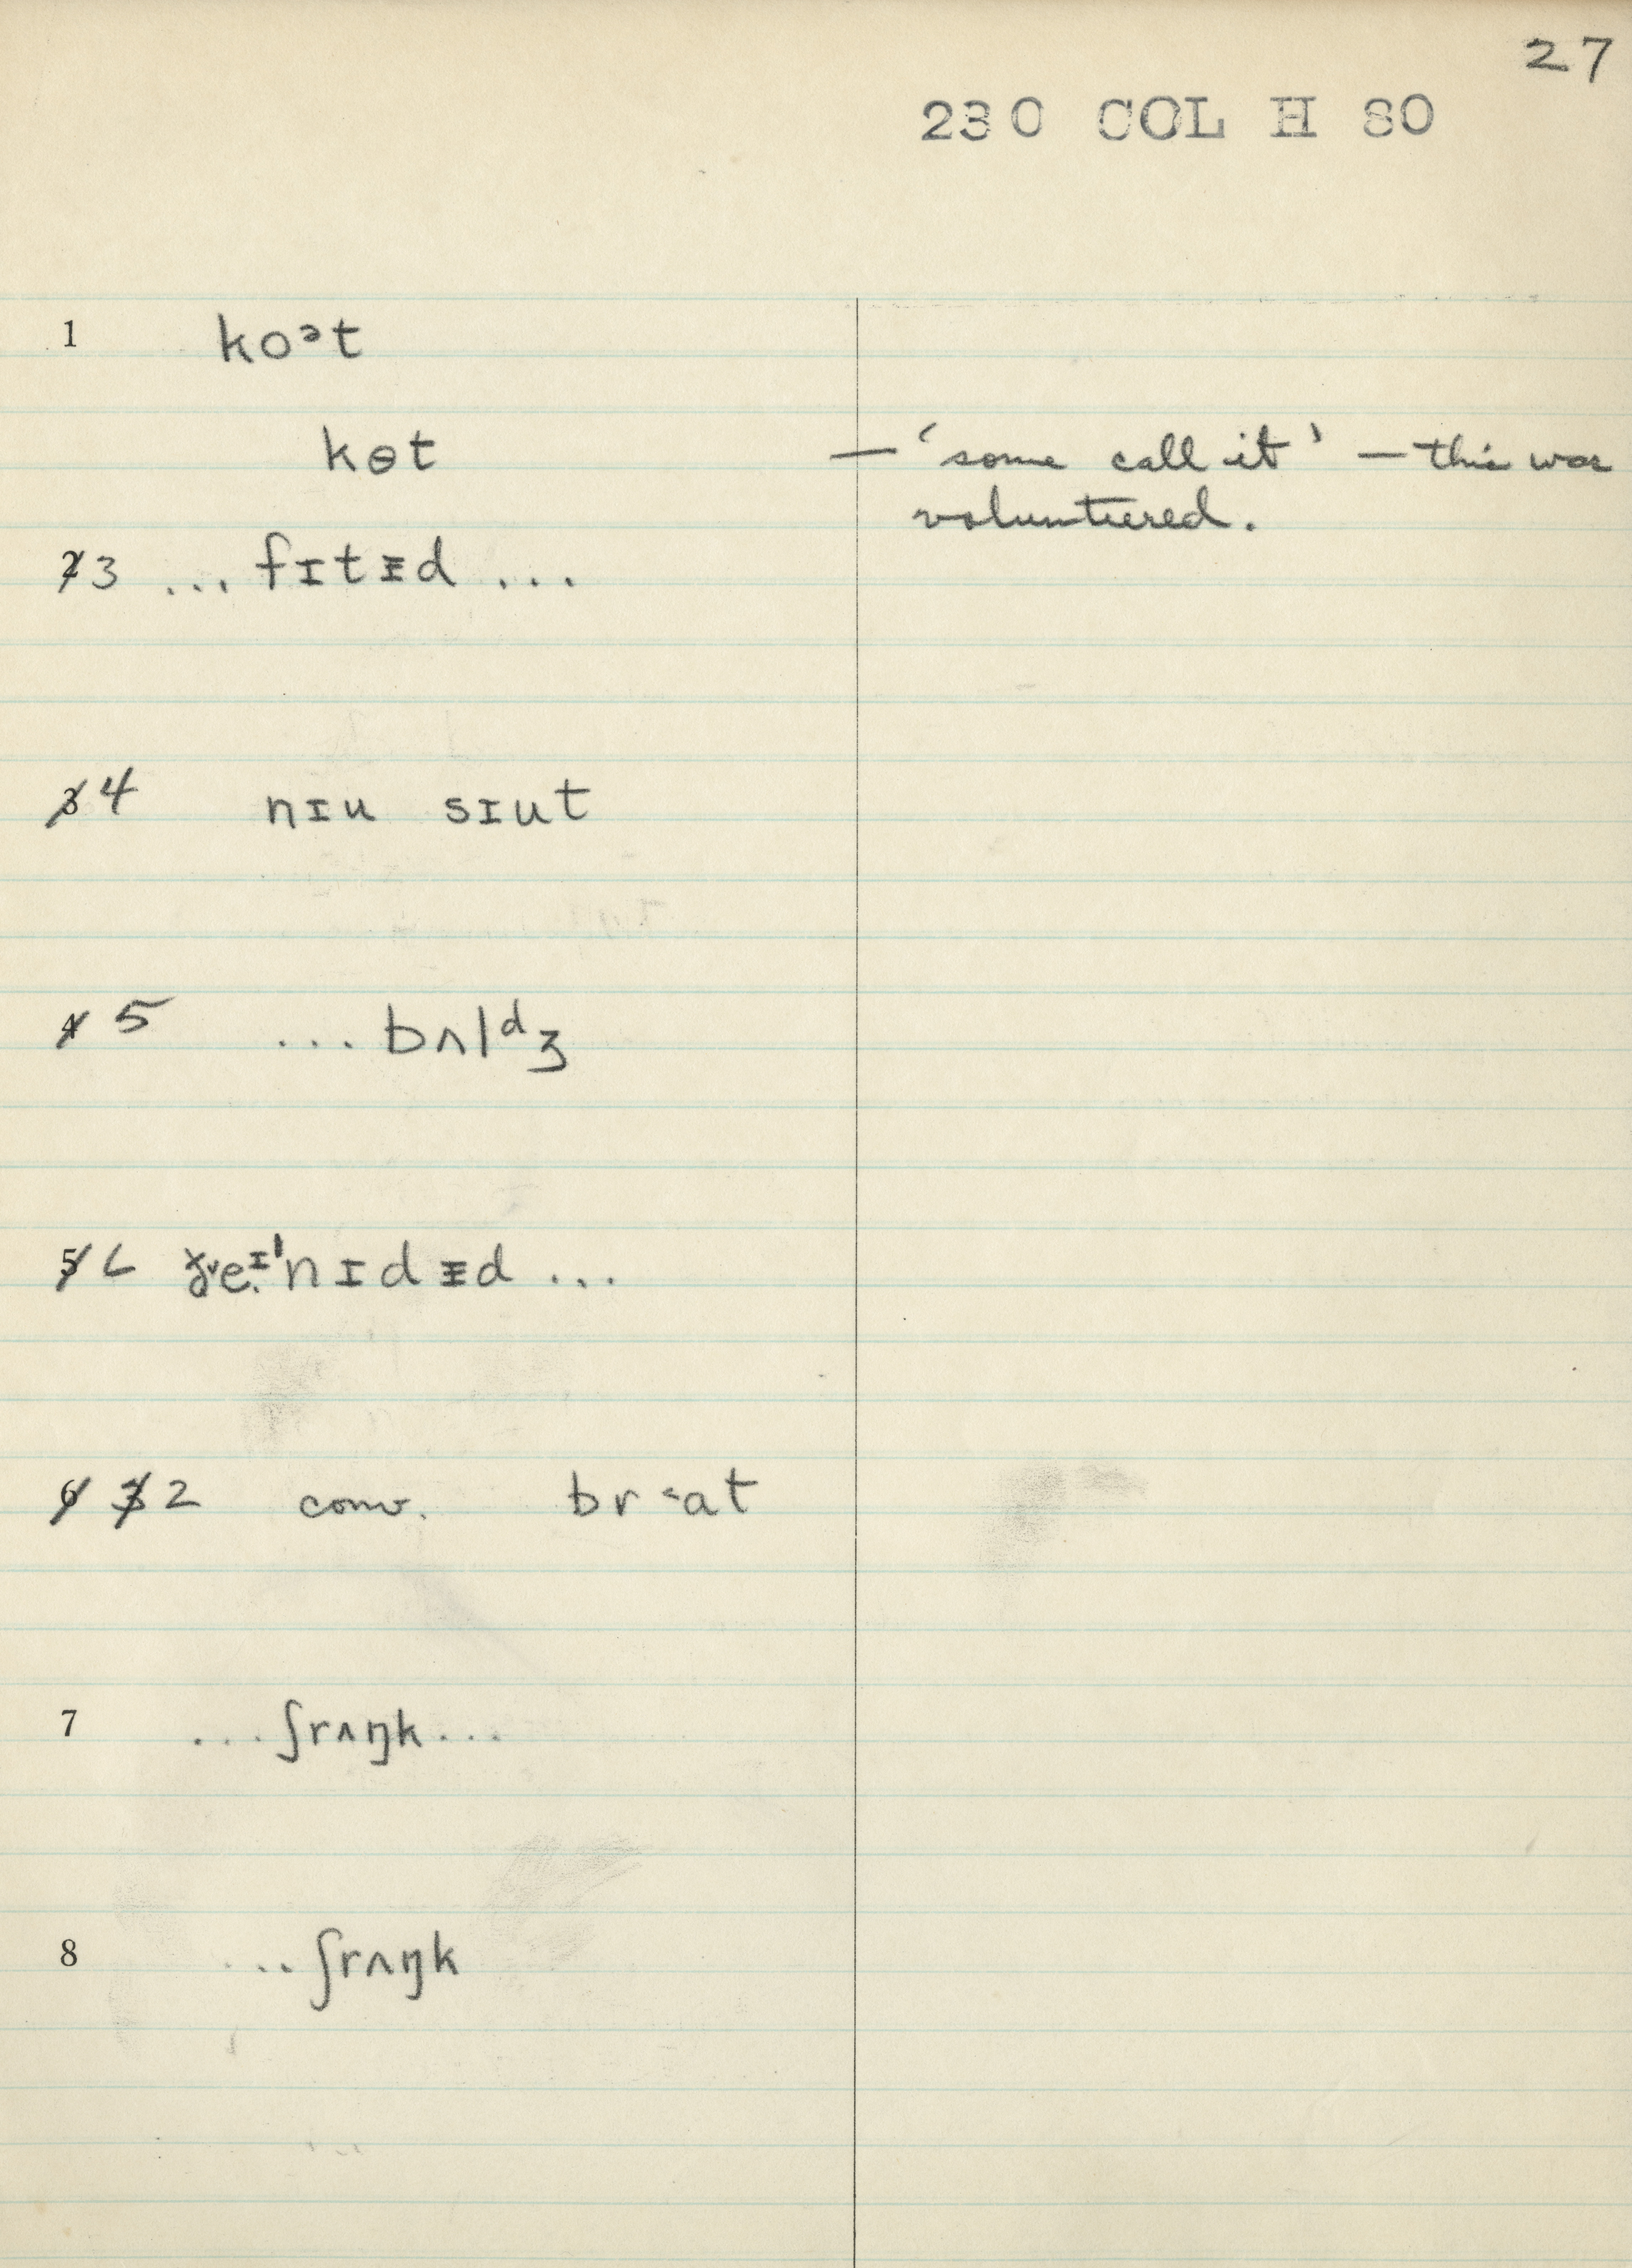 27
230 COL H 80
1 koᵊt
kɵt — ‘some call it’ — this was
volunteered.
2 3 ... fɪtᵻd ...
3 4 nɪu sɪut
4 5 ... bʌlᵈʒ
5 6
6 3 2 conv. br˂at
7 ... ʃrʌŋk ...
8 ... ʃrʌŋk